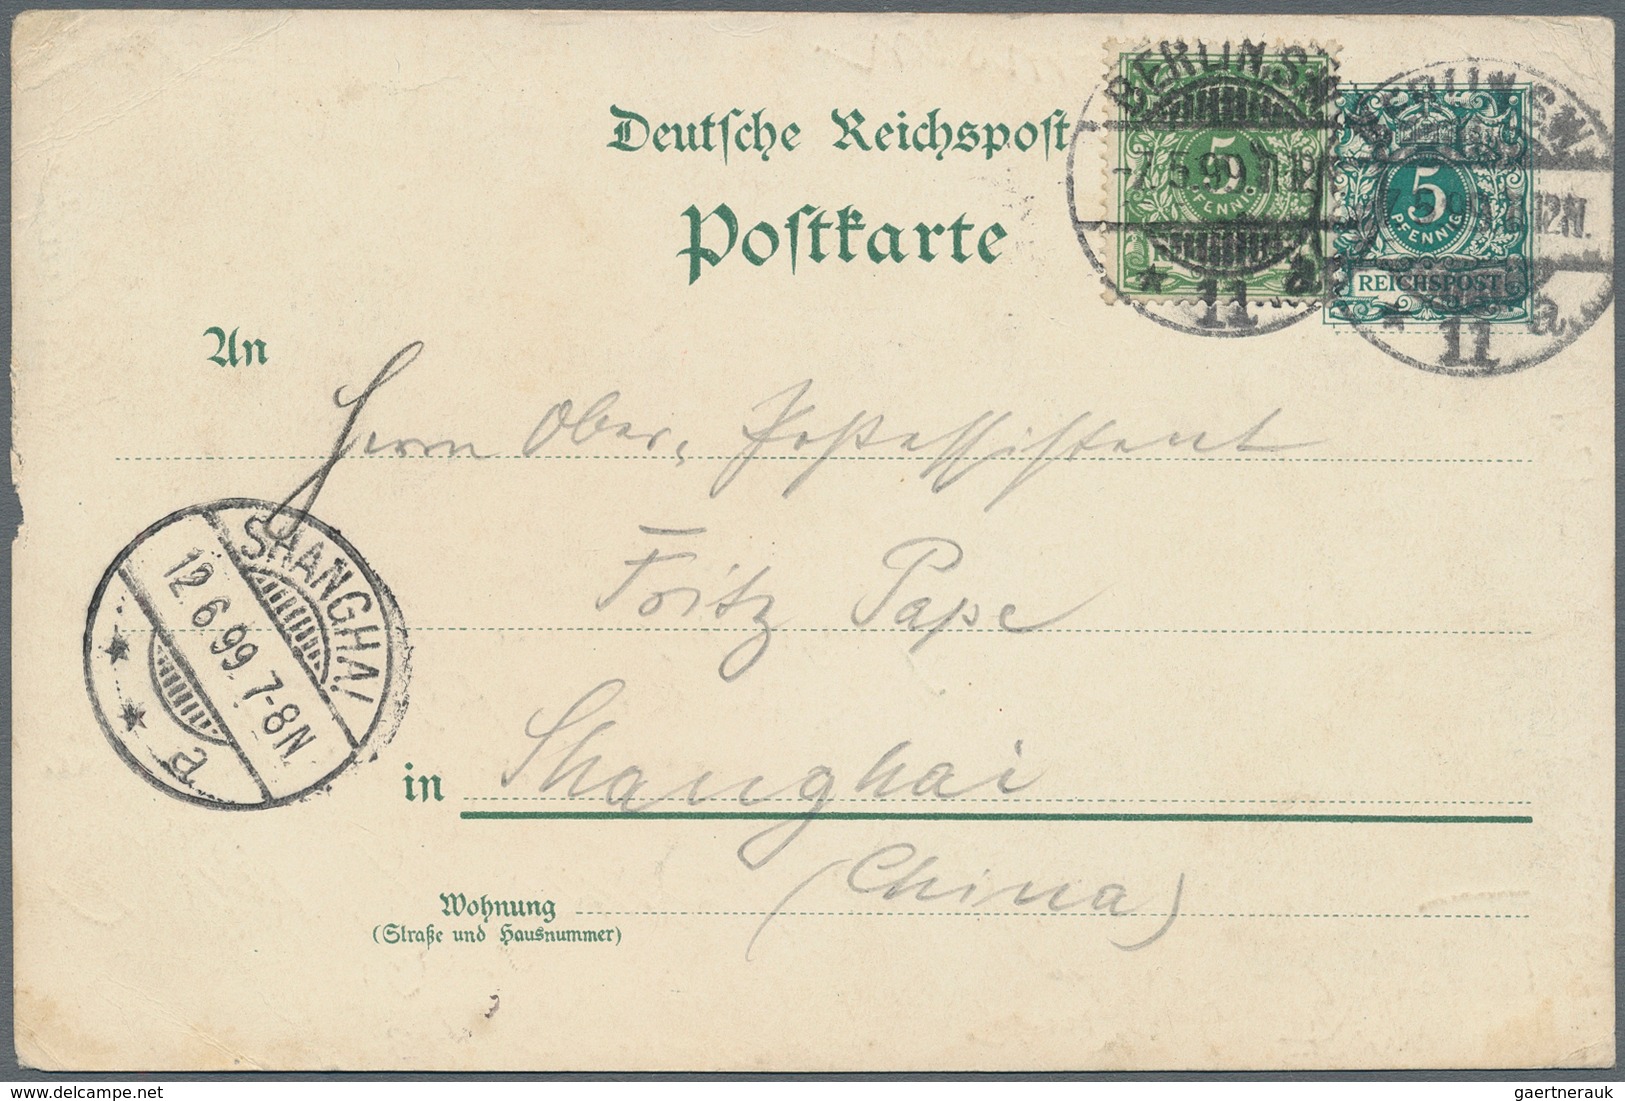 Deutsche Reichspost
Postkarte
BERLIN, S.W.
-7.5.99.11-12N.
* 11 a.
5
PFENNIG
BERLIN, S.W.
7.5.99. 12N.
* 11 a.
5
PFENNIG
REICHSPOST
An
Herrn Ober-Postassistent
Fritz Pape
in Shanghai
(China)
SHANGHAI
12.6.99. 7-8N.
* * a
Wohnung
(Straße und Hausnummer)
www.delcampe.net
gaertnerauk